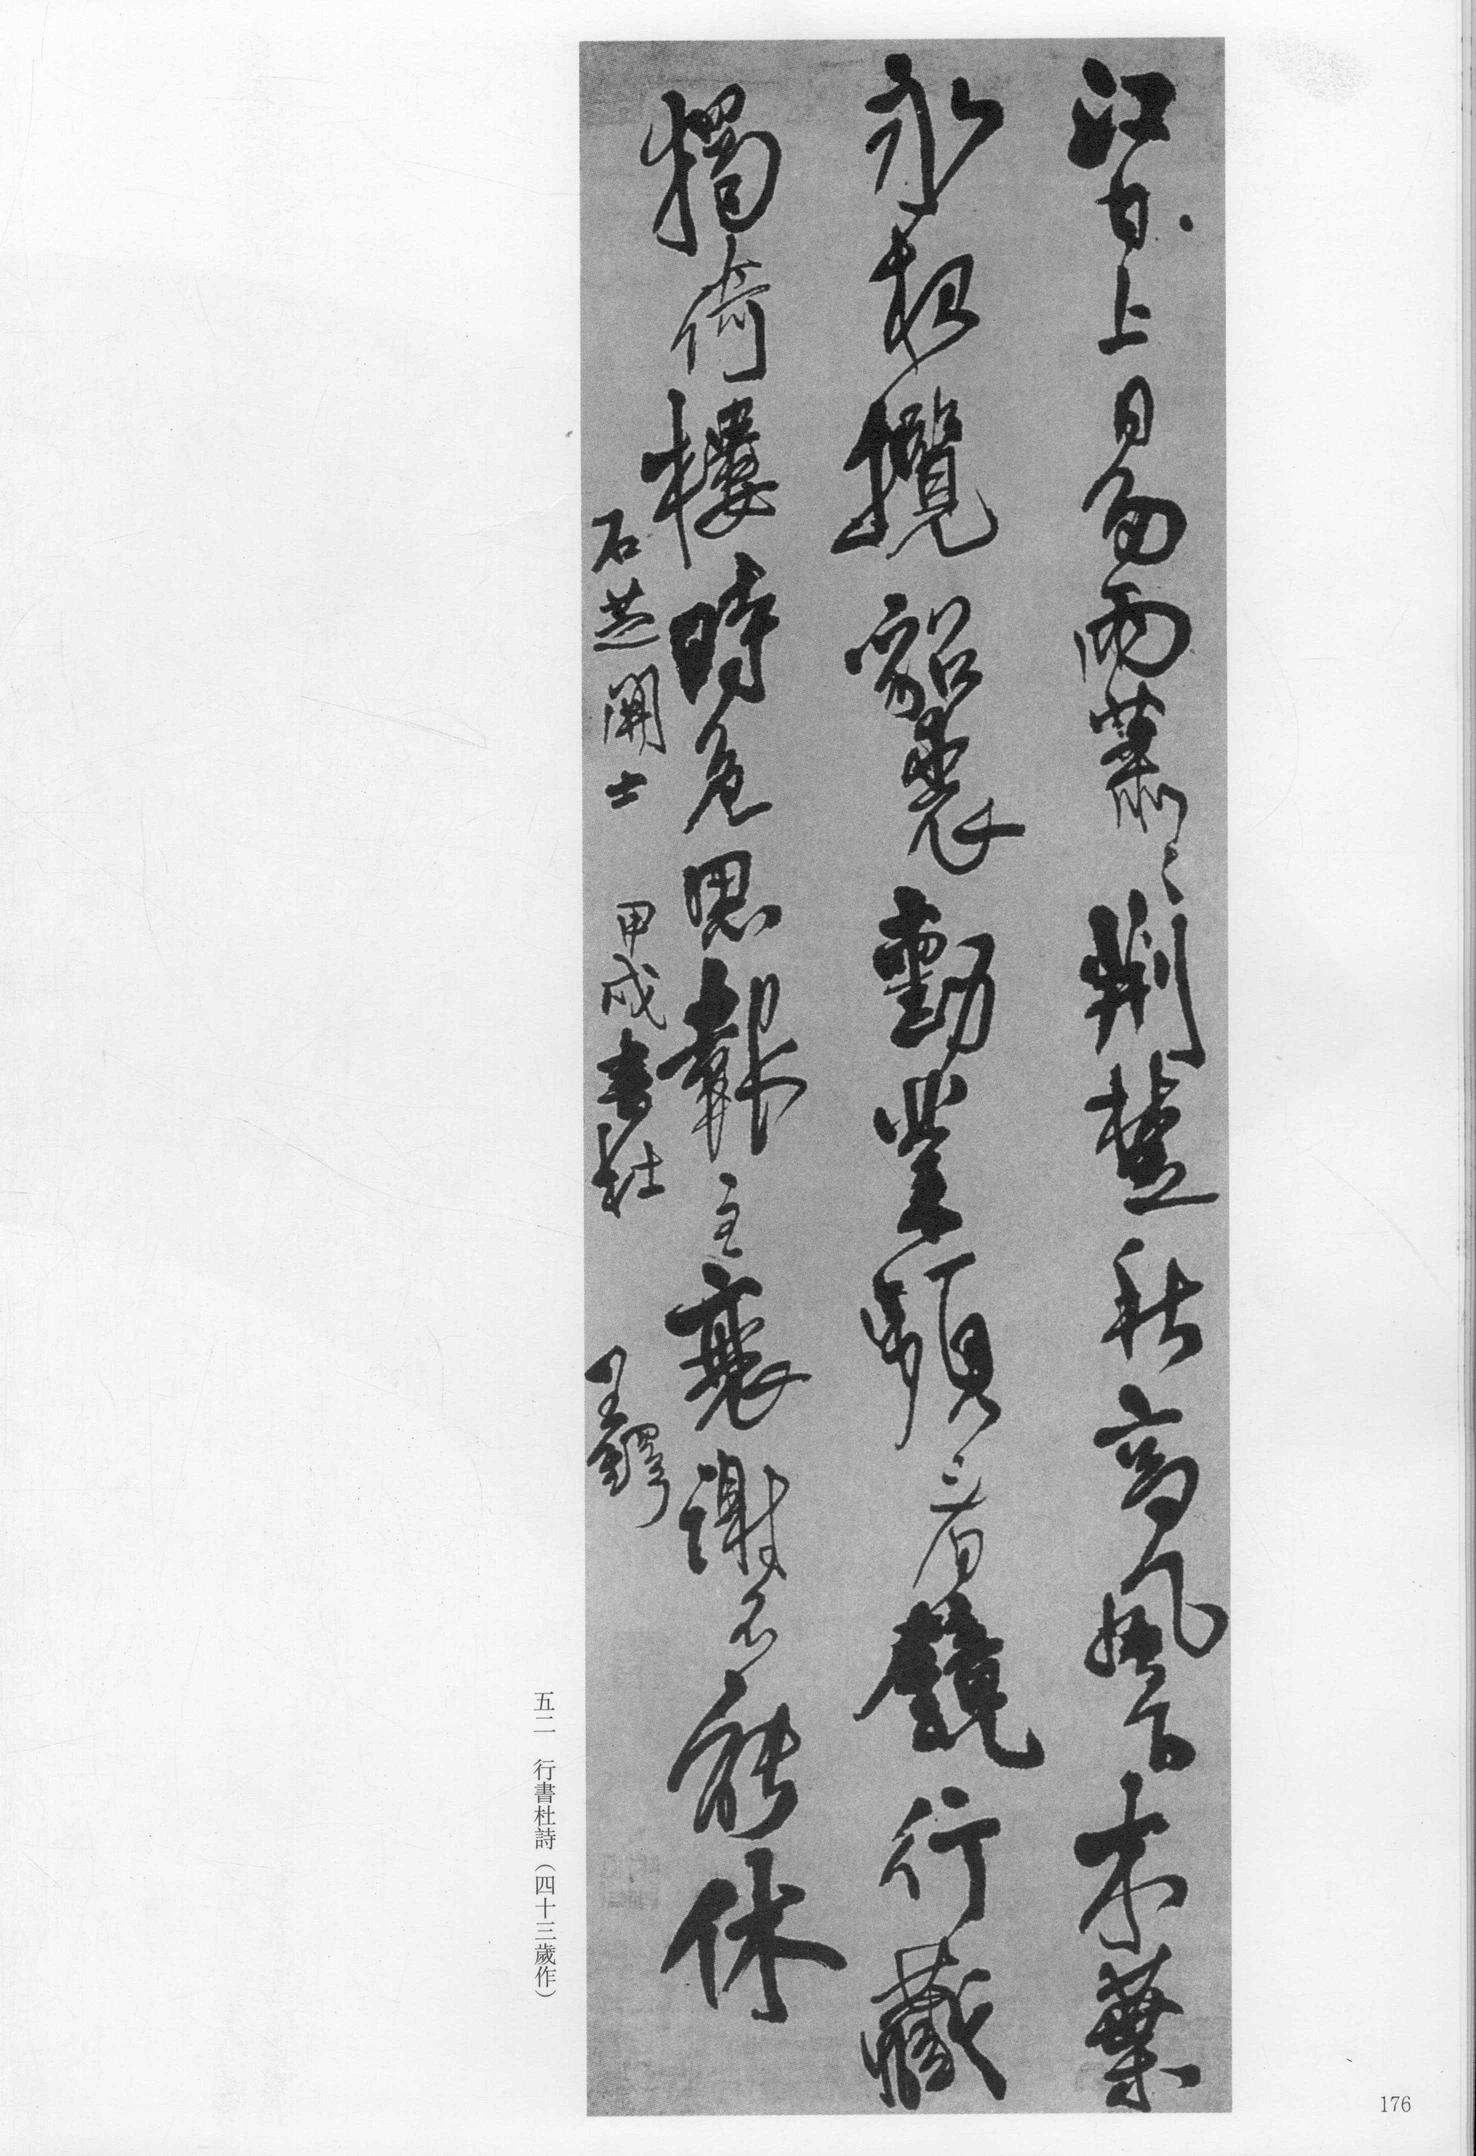 江日上日多雨蕭〻荊楚秋高風下木葉
永夜攬貂裘勳業頻看鏡行藏
獨倚樓時危思報主衰謝不能休
石芝開士 甲戌書杜 王鐸
五二 行書杜詩（四十三歲作）
176